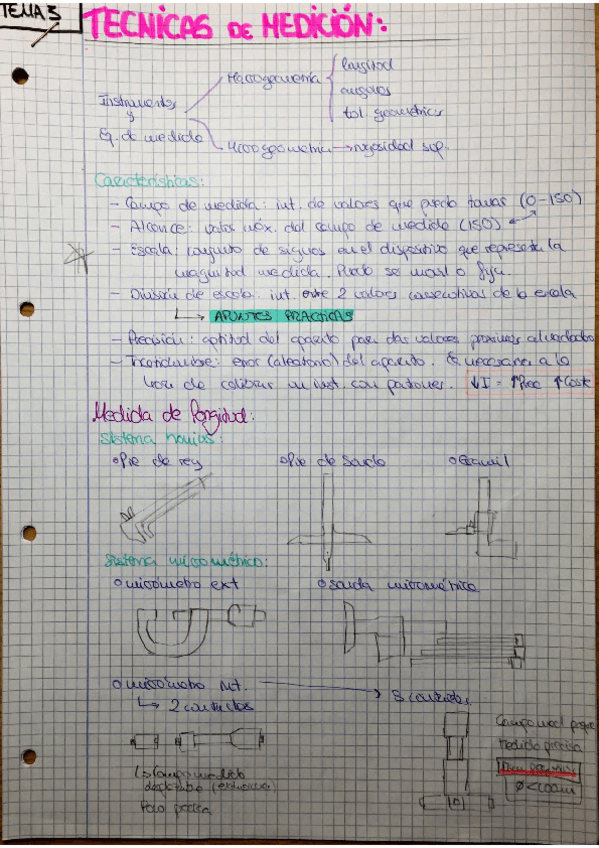 TEMA 3
TECNICAS DE MEDICIÓN:
Macrogeometria
longitud
angulos
tol. geometricas
Instrumentos
y
Eq. de medida
Microgeometria → rugosidad sup.
Características:
- Campo de medida: int. de valores que puedo tomar (0-150)
- Alcance: valor máx. del campo de medida (150)
- Escala: conjunto de signos en el dispositivo que representa la
magnitud medida. Puede ser movil o fija.
- División de escala: int. entre 2 valores consecutivos de la escala
↳ APUNTES PRACTICAS
- Precisión: aptitud del aparato para dar valores proximos al verdadero
- Incertidumbre: error (aleatorio) del aparato. Es necesaria a la
hora de calibrar un inst. con patrones. ↓I = ↑Prec ↑Coste
Medida de longitud:
Sistema nonius:
Pie de rey
Pie de Sonda
Gramil
Sistema micrométrico:
micrómetro ext
sonda micrométrica
micrómetro int.
→ 3 contactos
↳ 2 contactos
Campo med peque
Medida precisa
↳ campo medida
Poco precisa